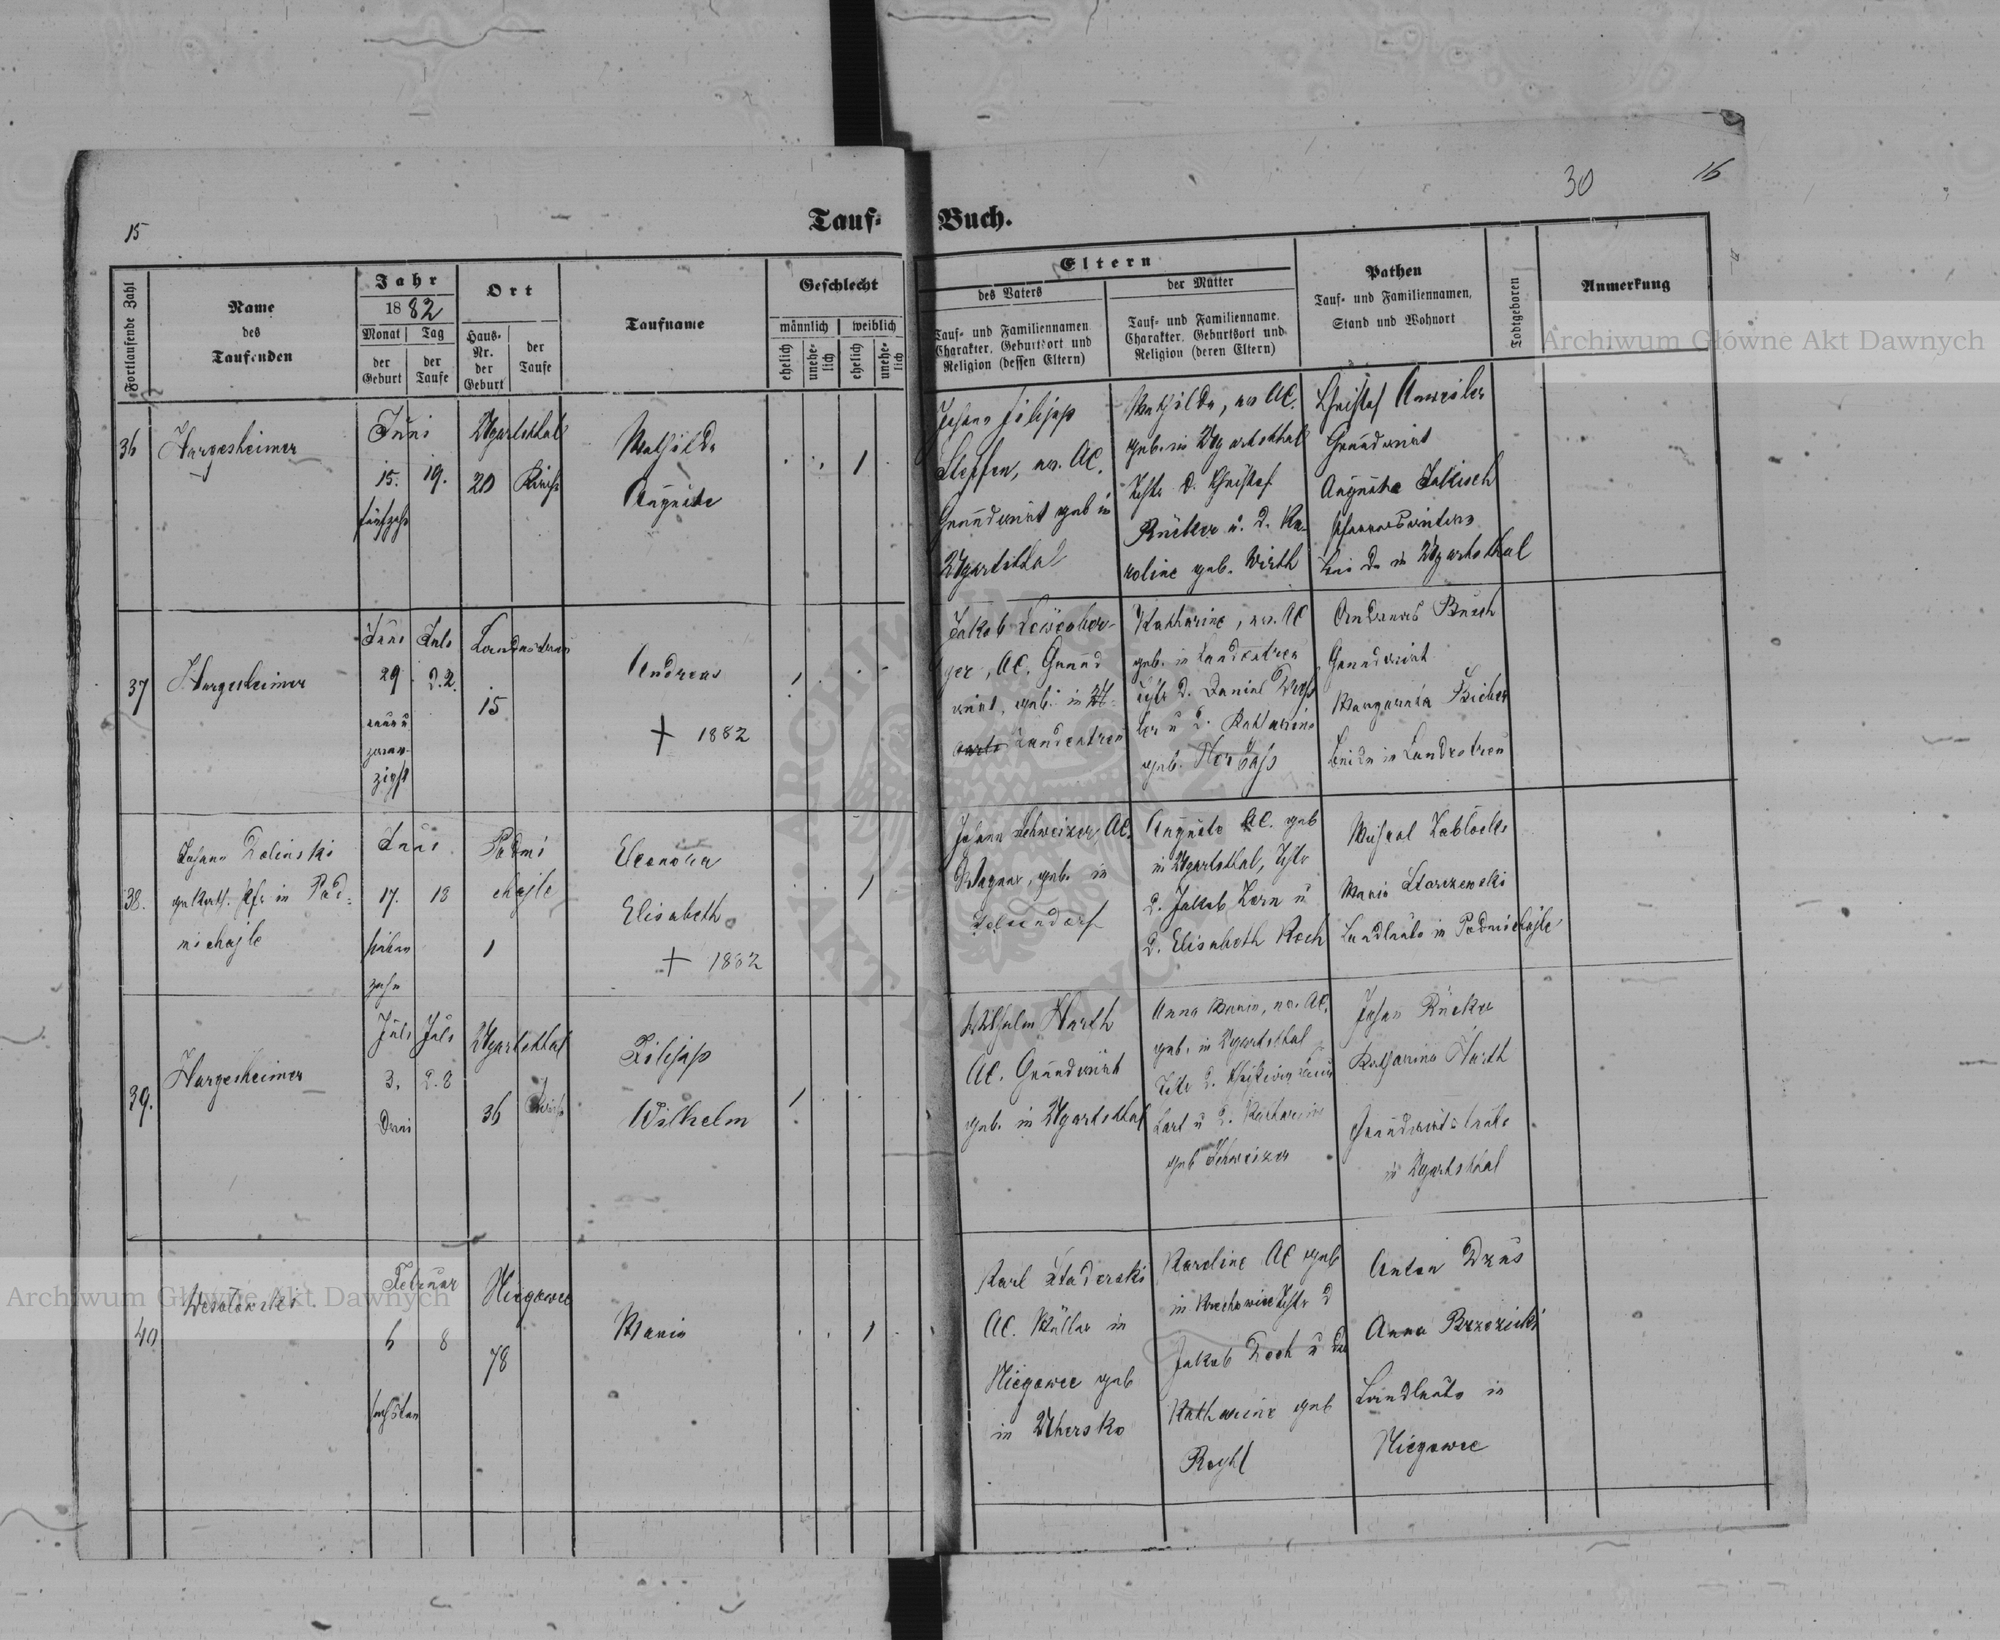 30
16
15
Tauf-Buch.
Fortlaufende Zahl
Name
des
Taufenden
Jahr
1882
Monat
Tag
der
Geburt
der
Taufe
Ort
Haus-
Nr.
der
Geburt
der
Taufe
Taufname
Geschlecht
männlich
weiblich
ehelich
unehe-
lich
ehelich
unehe-
lich
Eltern
des Vaters
Tauf- und Familiennamen
Charakter, Geburtsort und
Religion (dessen Eltern)
der Mutter
Tauf- und Familienname,
Charakter, Geburtsort und
Religion (deren Eltern)
Pathen
Tauf- und Familiennamen,
Stand und Wohnort
Todtgeboren
Anmerkung
Archiwum Główne Akt Dawnych
36
Hargesheimer
Juni
15.
19.
fünfzehn
Ugartsthal
20
Kirche
Mathilde
Auguste
1
Johann Filipp
Steffen, ev. AC.
Grundwirt geb in
Ugartsthal
Mathilde, ev AC.
geb. in Ugartsthal
Christof
Rücker u. d. Ka-
roline geb. Wirth
Christof Anweiler
Grundwirt
Auguste Jakisch
in Ugartsthal
37
Hargesheimer
Juni
Juli
29
d. 2.
neun u
zwan-
zigst
Landestreu
15
Andreas
+ 1882
1
Jakob
ger, AC. Grund
wirt, geb. in
Landestreu
Katharine, ev. AC
geb. in Landestreu
d. Daniel
u d. Katharina
geb.
Andreas Busch
Grundwirt
Margareta Bieber
beide in Landestreu
38.
Johann Dolinski
gr kath. Pfr in Pod-
michajle
Juni
17.
18
sieben
zehn
Podmi
chajle
1
Eleonora
Elisabeth
+ 1882
1
Johann Schweizer, AC.
Wagner, geb. in
Ugartsthal
AC. geb
in Ugartsthal,
d. Jakob Kern u
d. Elisabeth Koch
Michael Zablocki
Maria Starzewski
Landleute in Podmichajle
39.
Hargesheimer
Juli
Juli
3.
d. 8
Drei
Ugartsthal
36
Kirche
Filipp
Wilhelm
1
Wilhelm Harth
AC. Grundwirt
geb. in Ugartsthal
Anna Maria, ev. AC.
geb. in Ugartsthal
u d. Katharine
geb Schweizer
Johan Rücker
Katharina Harth
Grundwirtsleute
in Ugartsthal
40
Wesolowski
Februar
6
8
sechsten
Niegowce
78
Maria
1
Karl
AC. Müller in
Niegowce geb
in Uhersko
Karoline AC geb
in
Jakob Koch u der
Katharine geb
Anton
Anna Brzezicki
Landleute in
Niegowce
Archiwum Główne Akt Dawnych